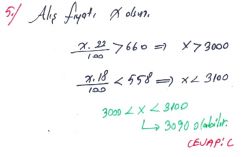 5-/ Alış fiyatı x olsun.
x.22/100 > 660 ⇒ x > 3000
x.18/100 < 558 ⇒ x < 3100
3000 < x < 3100
↳ 3090 olabilir.
CEVAP: C